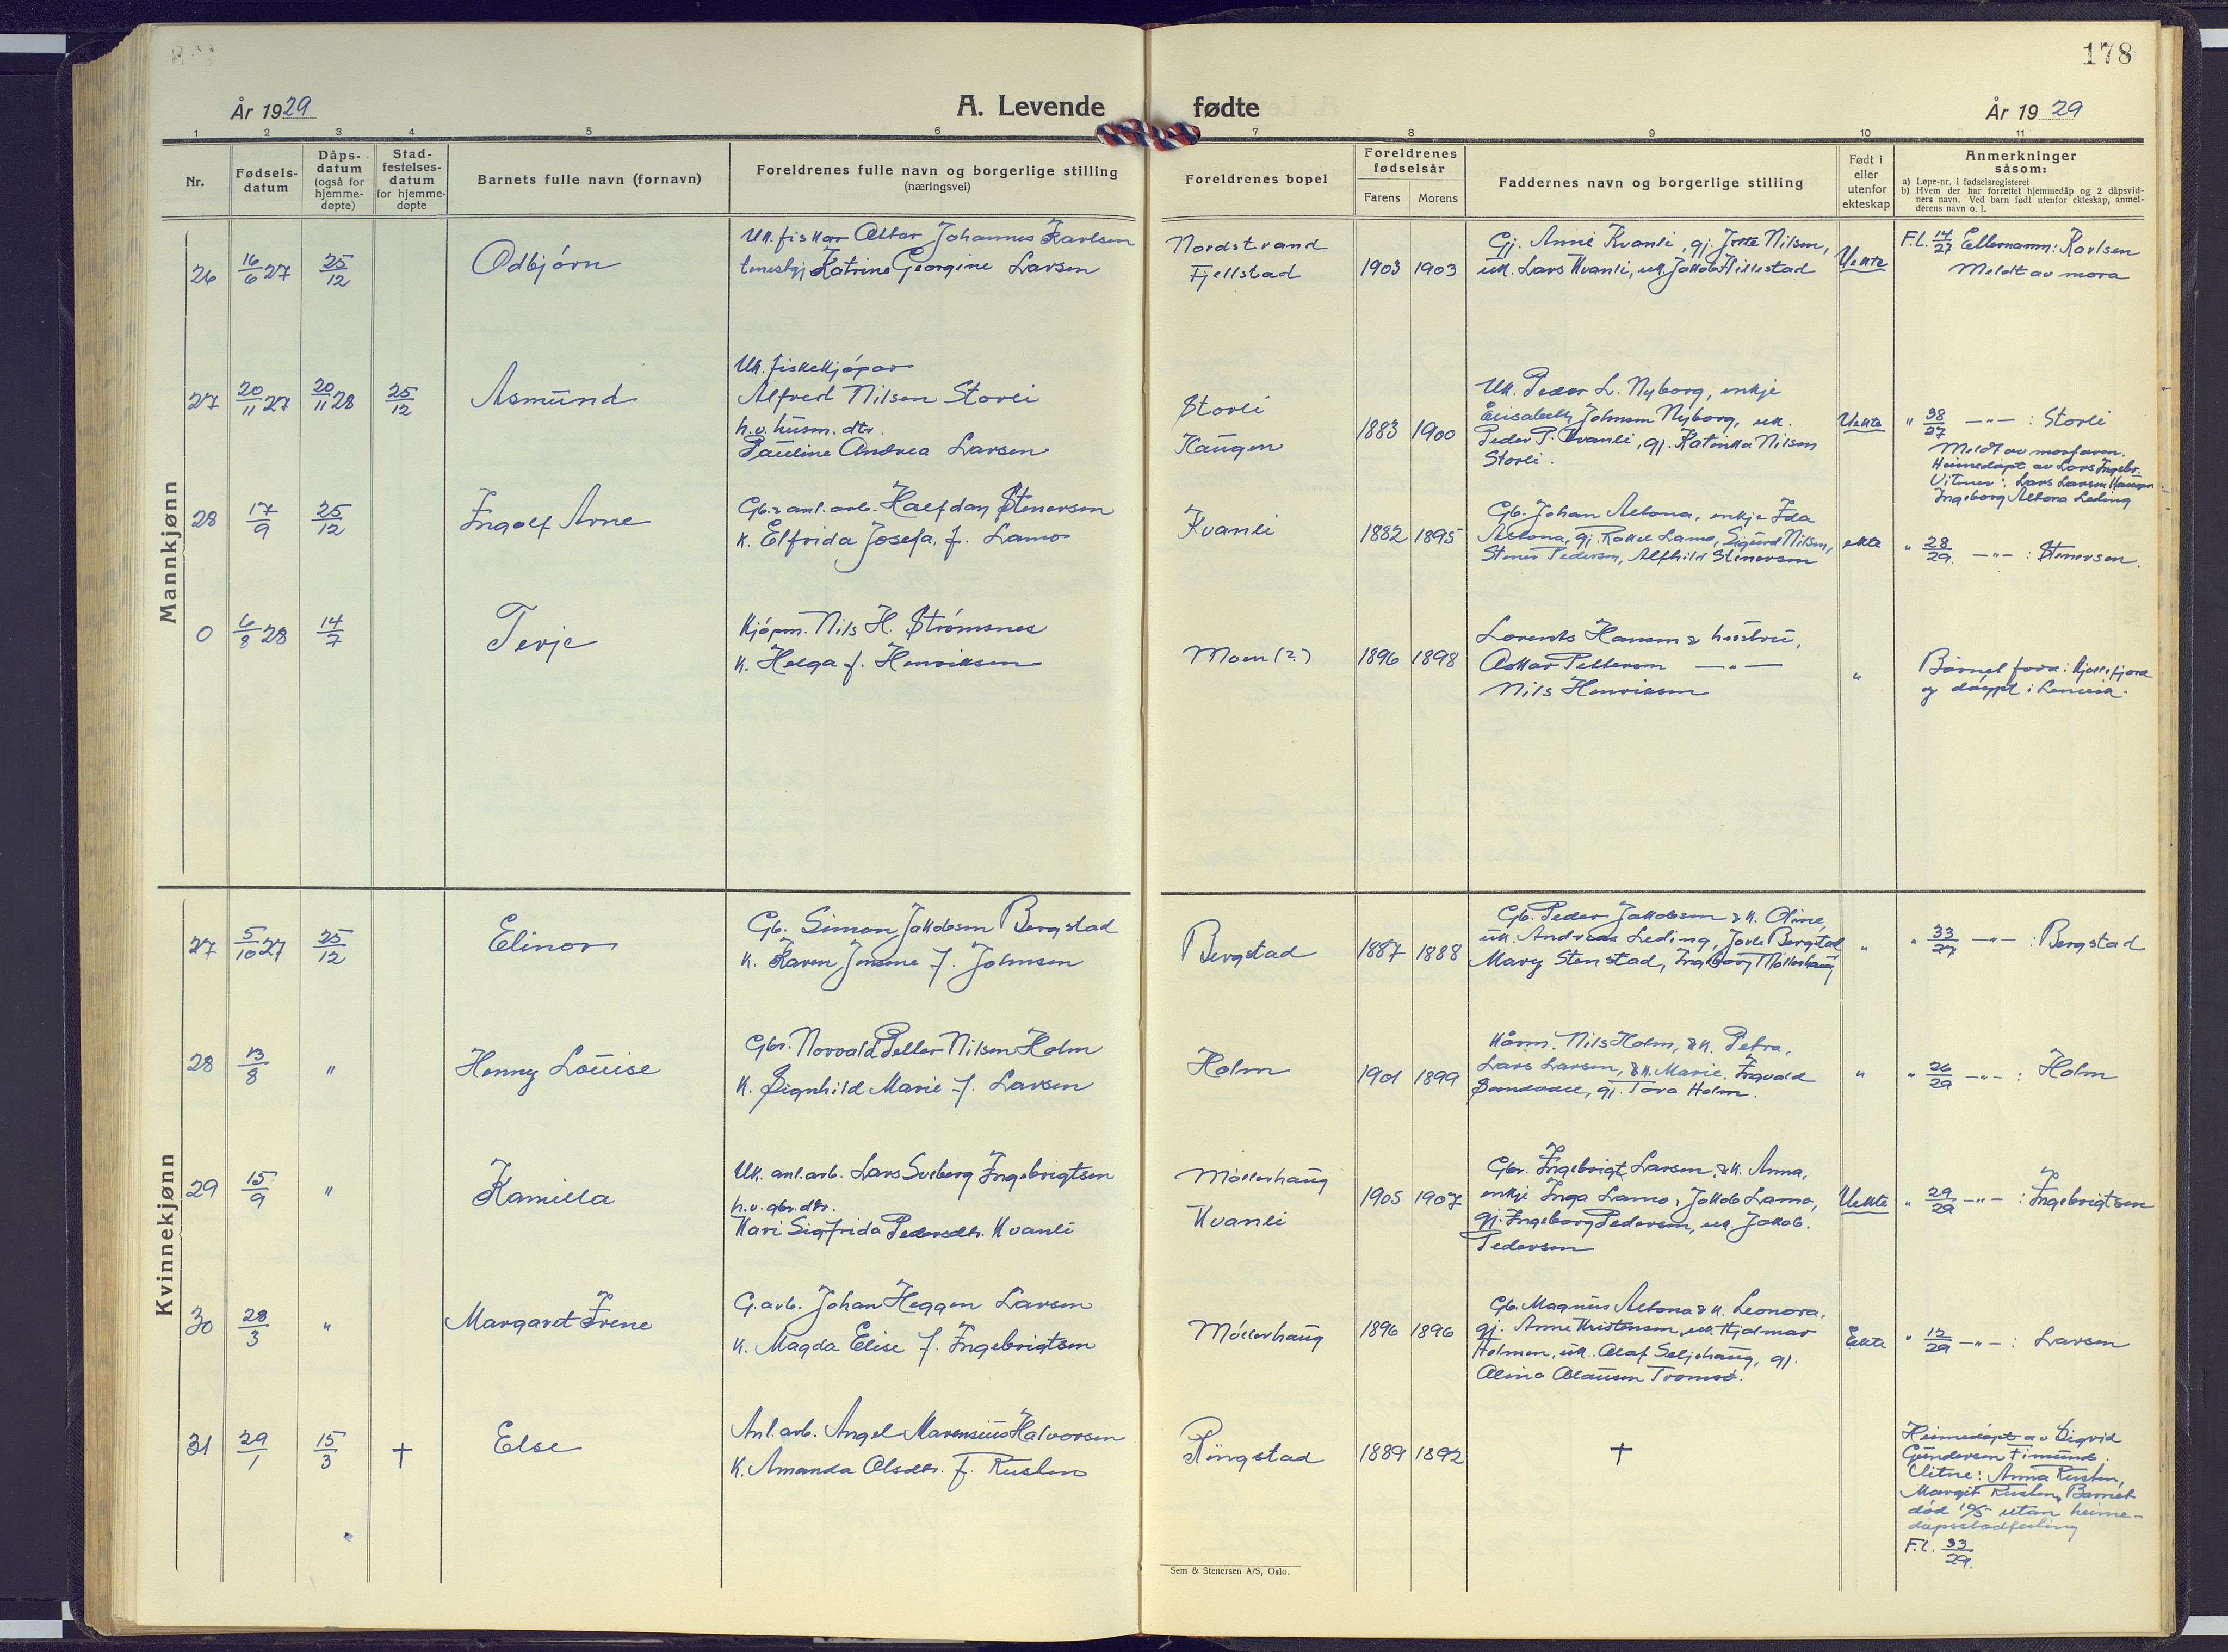 178
År 1929
A. Levende fødte
År 1929
1 2 3 4 5 6 7 8 9 10 11
Nr.
Fødsels-
datum
Dåps-
datum
(også for
hjemme-
døpte)
Stad-
festelses-
datum
for hjemme-
døpte
Barnets fulle navn (fornavn)
Foreldrenes fulle navn og borgerlige stilling
(næringsvei)
Foreldrenes bopel
Foreldrenes
fødselsår
Farens Morens
Faddernes navn og borgerlige stilling
Født i
eller
utenfor
ekteskap
Anmerkninger
såsom:
a) Løpe-nr. i fødselsregisteret
b) Hvem der har forrettet hjemmedåp og 2 dåpsvid-
ners navn. Ved barn født utenfor ekteskap, anmel-
derens navn o. l.
Mannkjønn
26 16/6 27 25/12 Odbjørn
Uk. fiskar Johannes Karlsen
tenestgj Katrine Georgine Larsen
Nordstrand
Fjellstad
1903 1903
Gj. Anne Kvanli, gj. Nilsen,
uk. Lars Kvanli, uk. Jakob Hillestad
Uekte
F.l. 14/27 Etternamn: Karlsen
Meldt av mora
27 20/11 27 20/11 28 25/12 Asmund
Uk. fiskekjøpar
Alfred Nilsen Storli
h.v. husm. dtr.
Pauline Andrea Larsen
Storli
Haugen
1883 1900
Uk. Peder L. Nyborg, enkje
Elisabeth Johnsen Nyborg, uk.
Peder P. Kvanli, gj. Katinka Nilsen
Storli.
Uekte
" 38/27 —"— : Storli
Meldt av morfaren.
Heimedøpt av Lars Ingebr.
Vitner: Lars Larsen Haugen
Ingeborg Altona Leding
28 17/9 25/12 Ingolf Arne
Gb. & anl. arb. Halfdan Stenersen
k. Elfrida Josefa, f. Lamo
Kvanli
1882 1895
Gb. Johan Altona, enkje Ida
Altona, gj. Rakel Lamo, Sigurd Nilsen,
Stener Pedersen, Alfhild Stenersen
ekte
" 28/29 —"— : Stenersen.
0 6/8 28 14/7 Terje
Kjøpm. Nils H. Strømsnes
k. Helga f. Henriksen
Moen (?)
1896 1898
Lorents Hansen & hustru,
Oskar Pettersen —"—
Nils Henriksen
"
Barnet født i Kjøllefjord
og døypt i Lenvik.
Kvinnekjønn
27 5/10 27 25/12 Elinor
Gb. Simon Jakobsen Bergstad
k. Karen Jensine f. Johnsen
Bergstad
1887 1888
Gb. Peder Jakobsen & k. Oline,
uk. Andreas Leding, Bergstad
Mary Stenstad, Ingeborg Møllerhaug
"
" 33/27 —"— : Bergstad
28 13/8 " Henny Louise
Gbr. Norvald Peller Nilsen Holm
k. Signhild Marie f. Larsen
Holm
1901 1899
Kårm. Nils Holm, & k. Petra,
Lars Larsen, & k. Marie. Ingvald
Sandvall, gj. Tora Holm.
"
" 26/29 —"— : Holm
29 15/9 " Kamilla
Uk. anl. arb. Lars Solberg Ingebrigtsen
h.v. gbr. dtr.
Kari Sigfrida Pedersdtr. Kvanli
Møllerhaug
Kvanli
1905 1907
Gbr. Ingebrigt Larsen, & k. Anna,
enkje Inga Lamo, Jakob Lamo,
gj. Ingeborg Pedersen, uk. Jakob.
Pedersen
Uekte
" 29/29 —"— : Ingebrigtsen
30 28/3 " Margaret Irene
G. arb. Johan Heggen Larsen
k. Magda Elise f. Ingebrigtsen
Møllerhaug
1896 1896
Gb. Magnus Altona & k. Leonora,
gj. Anne Kristensen, uk. Hjalmar
Holmen, uk. Olaf Seljehaug, gj.
Alina Olausen Tromsø.
Ekte
" 12/29 —"— : Larsen
31 29/1 15/3 † Else
Anl. arb. Angel Marensius Halvorsen
k. Amanda Olsdtr. f. Rusten
Ringstad
1889 1892
†
Heimedøpt av Sigrid
Gundersen Fimund.
Vitne: Anna Rusten,
Margit Rusten, Barnet
død 19/5 utan heime-
dåpsstadfesting
F.l. 33/29.
Sem & Stenersen A/S, Oslo.